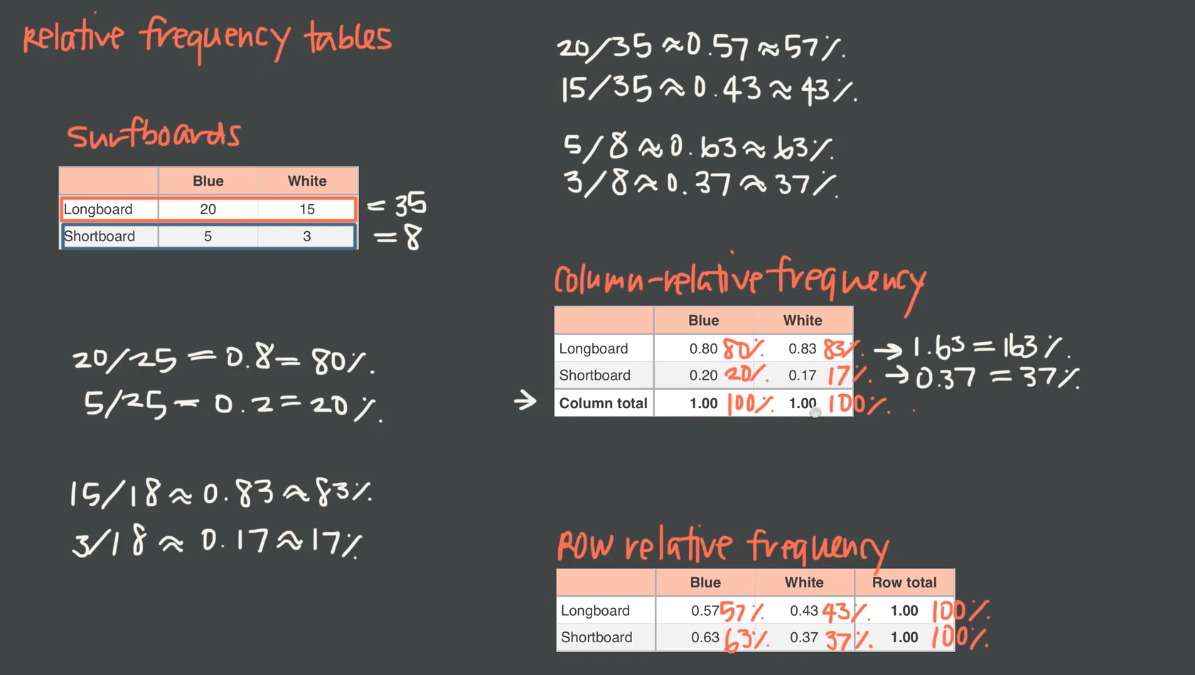 Relative frequency tables
Surfboards
Blue White
Longboard 20 15 = 35
Shortboard 5 3 = 8
20/25 = 0.8 = 80%.
5/25 = 0.2 = 20%.
15/18 ≈ 0.83 ≈ 83%.
3/18 ≈ 0.17 ≈ 17%
20/35 ≈ 0.57 ≈ 57%.
15/35 ≈ 0.43 ≈ 43%.
5/8 ≈ 0.63 ≈ 63%.
3/8 ≈ 0.37 ≈ 37%.
Column-relative frequency
Blue White
Longboard 0.80 80% 0.83 83% → 1.63 = 163%.
Shortboard 0.20 20% 0.17 17% → 0.37 = 37%.
→ Column total 1.00 100% 1.00 100%.
Row relative frequency
Blue White Row total
Longboard 0.57 57% 0.43 43% 1.00 100%.
Shortboard 0.63 63% 0.37 37% 1.00 100%.